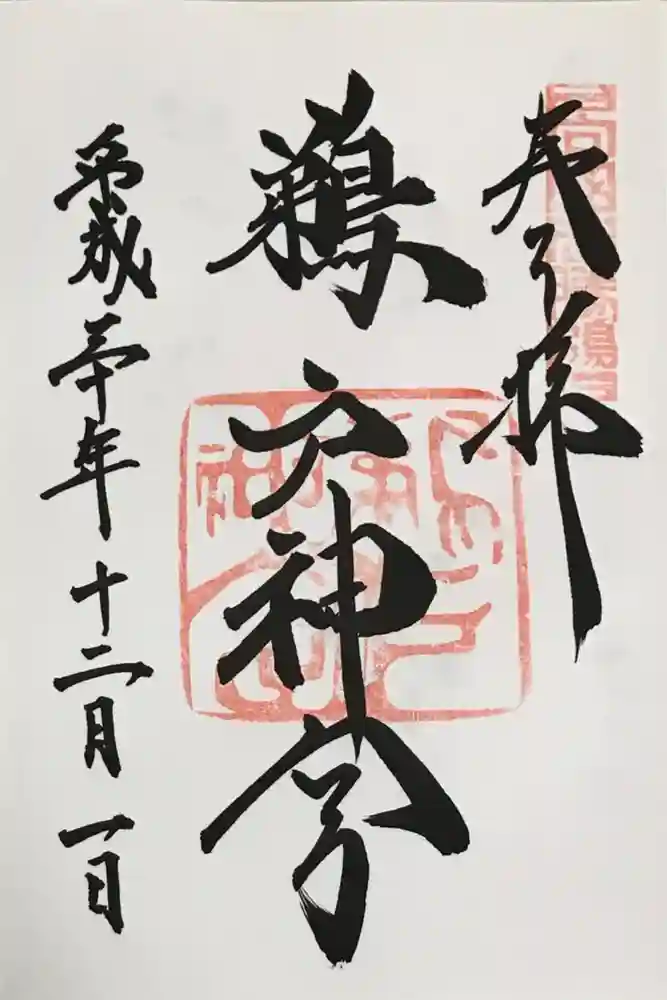 奉拝
鵜戸神宮
平成三十年十二月一日